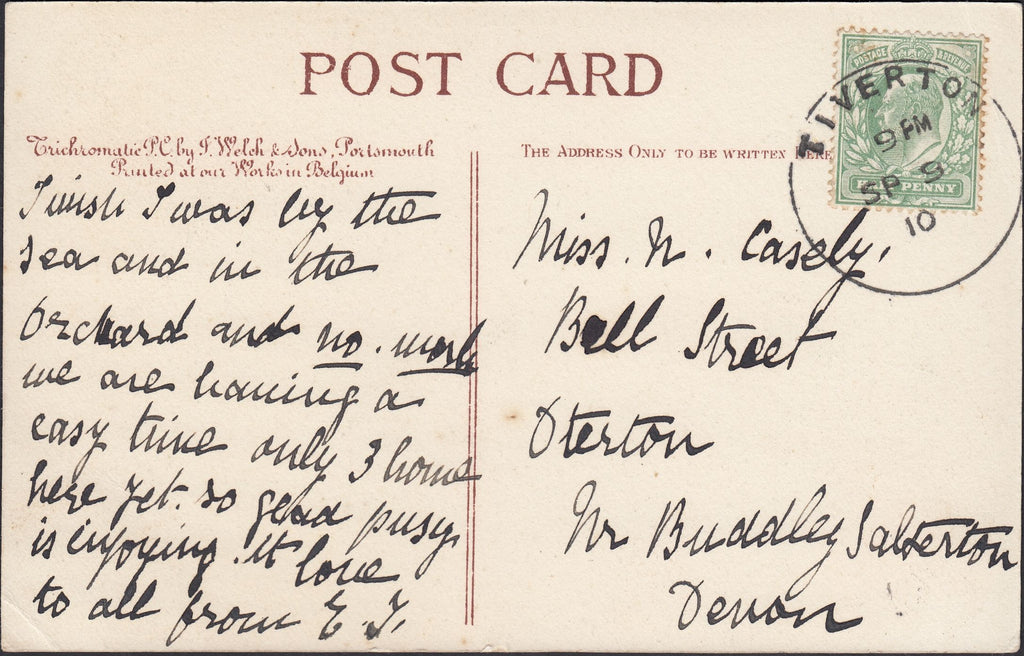 POST CARD
Trichromatic P.C. by F. Welch & Sons, Portsmouth
Printed at our Works in Belgium
I wish I was by the
sea and in the
Orchard and no. work
we are having a
easy time only 3 home
here yet. so glad pusy
is enjoying it love
to all from E. J.
THE ADDRESS ONLY TO BE WRITTEN HERE
POSTAGE & REVENUE
HALF PENNY
TIVERTON
9 PM
SP 9
10
Miss. N. Casely,
Bell Street
Oterton
Nr Buddley Salterton
Devon